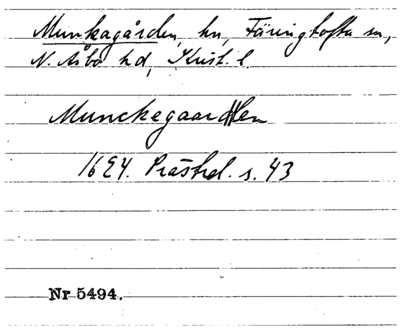 Munkagården, hn, Färingtofta sn,
N. Åsbo hd, Krist. l.
Munckegaardtten
1624. Prästrel. s. 43
Nr 5494.